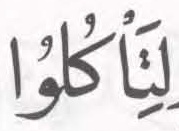 لِتَأْكُلُوا